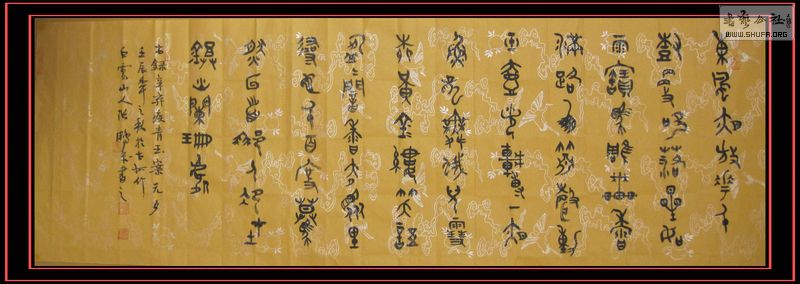 東風夜放花千
樹更吹落星如
雨寶馬雕車香
滿路鳳簫聲動
玉壺光轉一夜
魚龍舞蛾兒雪
柳黃金縷笑語
盈盈暗香去眾里
尋他千百度驀
然回首那人卻在
鐙火闌珊處
右錄辛棄疾青玉案元夕
壬辰年之秋於古
白雲山人 書之
书艺公社
WWW.SHUFA.ORG